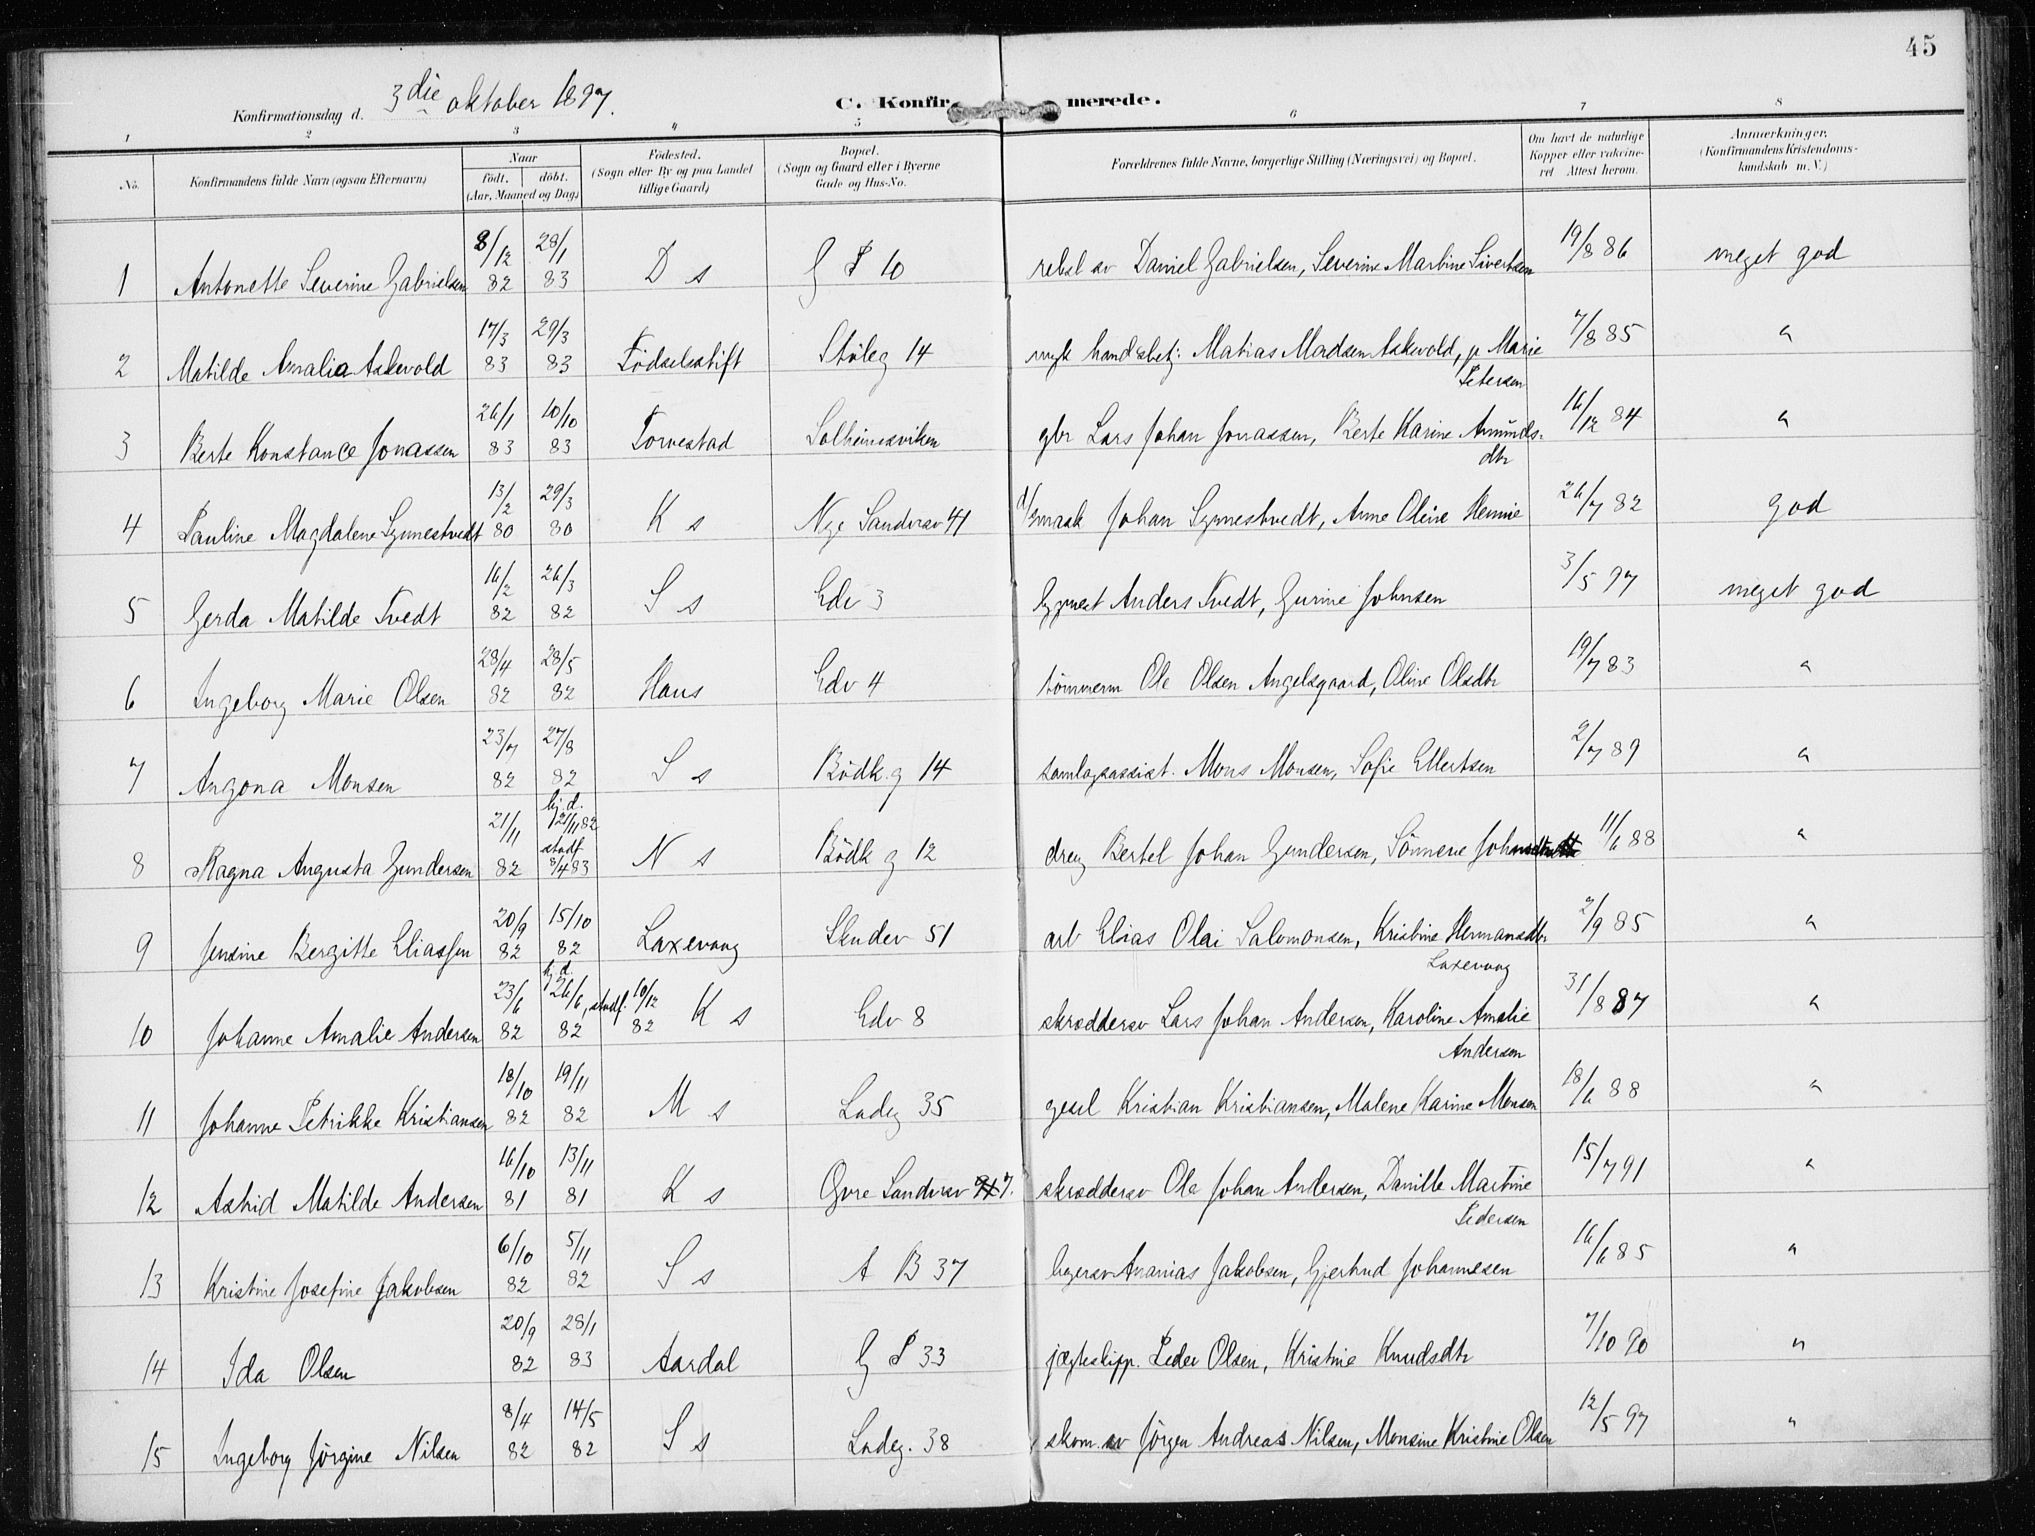 45
Konfirmationsdag d. 3die oktober 1897. C. Konfirmerede.
1 2 3 4 5 6 7 8
No. Konfirmandens fulde Navn (ogsaa Efternavn) Naar födt. döbt. (Aar, Maaned og Dag) Födested. (Sogn eller By og paa Landet tillige Gaard) Bopæl. (Sogn og Gaard eller i Byerne Gade og Hus-No. Forældrenes fulde Navne, borgerlige Stilling (Næringsvei) og Bopæl. Om havt de naturlige Kopper eller vakcineret Attest herom. Anmærkninger. (Konfirmandens Kristendomskundskab m. V.)
1 Antonette Severine Gabrielsen 8/12 82 28/1 83 D s G P 10 rebsl sv Daniel Gabrielsen, Severine Martine Sivertsen 19/8 86 meget god
2 Matilde Amalia Askevold 17/3 83 29/3 83 Födselsstift Stöleg 14 handelsbetj. Matias Madsen Askevold, p Marie Petersen 7/8 85 "
3 Berte Konstance Jonassen 26/1 83 10/10 83 Torvestad Solheimsviken gbr Lars Johan Jonassen, Berte Karine Amundsdtr 16/12 84 "
4 Pauline Magdalene Synnestvedt 13/2 80 29/3 80 K s Nye Sandvsv 41 Johan Synnestvedt, Anne Oline Hennie 26/7 82 god
5 Gerda Matilde Tvedt 16/2 82 26/3 82 S s Edv 3 bygmest Anders Tvedt, Gurine Johnsen 3/5 97 meget god
6 Ingeborg Marie Olsen 28/4 82 28/5 82 Haus Edv 4 tömmerm Ole Olsen Angelsgaard, Oline Olsdtr 19/7 83 "
7 Angona Monsen 23/7 82 27/8 82 S s Bödk. g 14 samlagsassist. Mons Monsen, Sofie Ellertsen 2/7 89 "
8 Ragna Augusta Gundersen 21/11 82 hj. d. 21/11 82 stadf 8/4 83 N s Bödk g 12 drey Bertel Johan Gundersen, Sönneve 11/6 88 "
9 Jensine Bergitte Eliassen 20/9 82 15/10 82 Laxevaag Skudev 51 arb Elias Olai Salomonsen, Kristine Hermansdtr Laxevaag 2/9 85 "
10 Johanne Amalie Andersen 23/6 82 hj. d. 26/6 82, stadf. 10/12 82 K s Edv 8 skræddersv Lars Johan Andersen, Karoline Amalie Andersen 31/8 87 "
11 Johanne Petrikke Kristiansen 18/10 82 19/11 82 M s Ladeg 35 gesel Kristian Kristiansen, Malene Karine Monsen 18/6 88 "
12 Astrid Matilde Andersen 16/10 81 13/11 81 K s Övre Sandvsv 7. skræddersv Ole Johan Andersen, Danille Martine Pedersen 15/7 91 "
13 Kristine Josefine Jakobsen 6/10 82 5/11 82 S s A B 37 Ananias Jakobsen, Gjertrud Johannesen 16/6 85 "
14 Ida Olsen 20/9 82 28/1 83 Aardal G P 33 jægteskipp. Peder Olsen, Kristine Knudsdtr 7/10 90 "
15 Ingeborg Jörgine Nilsen 8/4 82 14/5 82 S s Ladeg. 38 skom. sv Jörgen Andreas Nilsen, Monsine Kristine Olsen 12/5 97 "